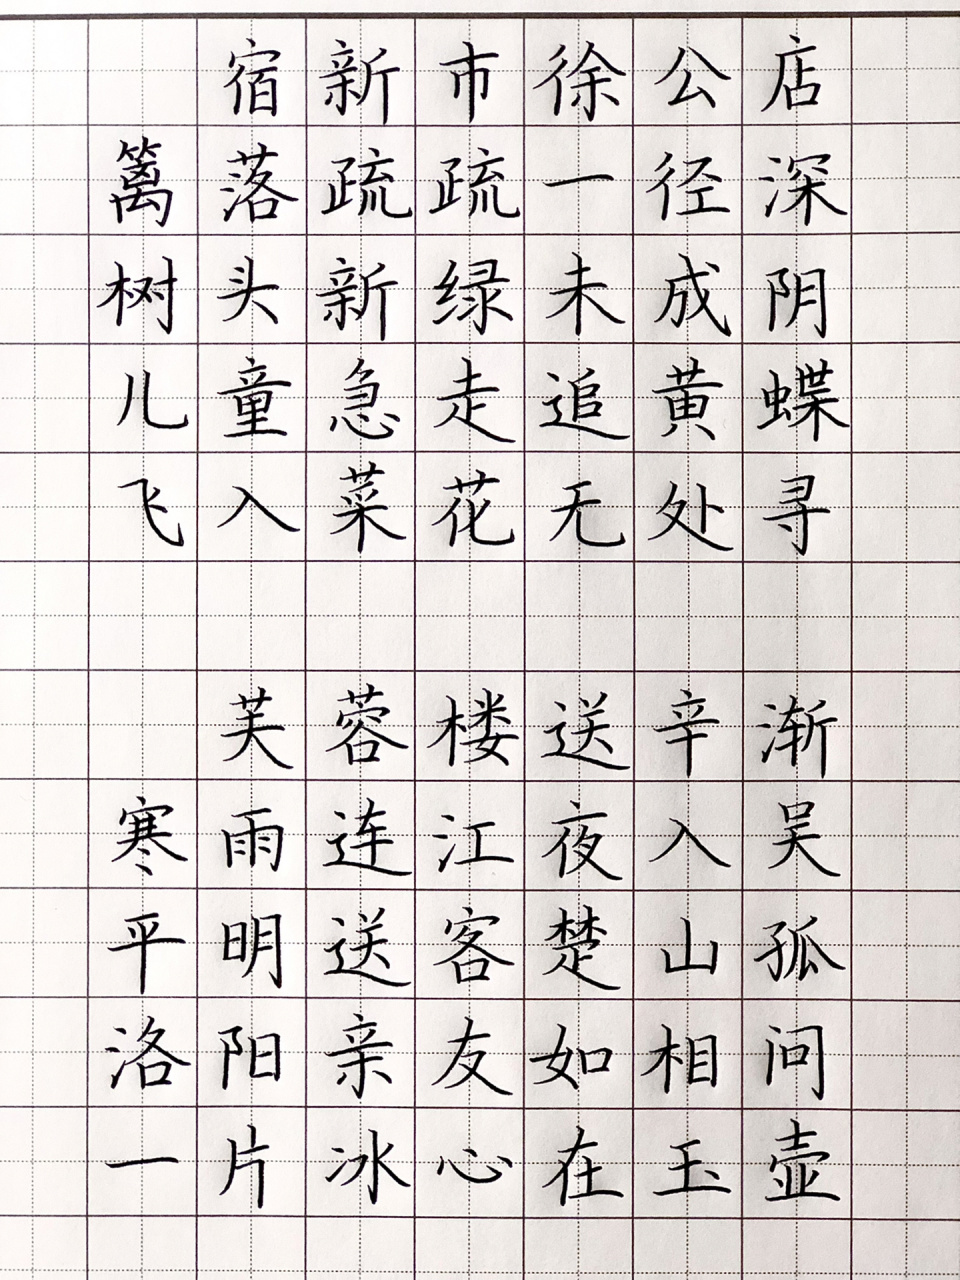 宿新市徐公店
篱落疏疏一径深
树头新绿未成阴
儿童急走追黄蝶
飞入菜花无处寻
芙蓉楼送辛渐
寒雨连江夜入吴
平明送客楚山孤
洛阳亲友如相问
一片冰心在玉壶